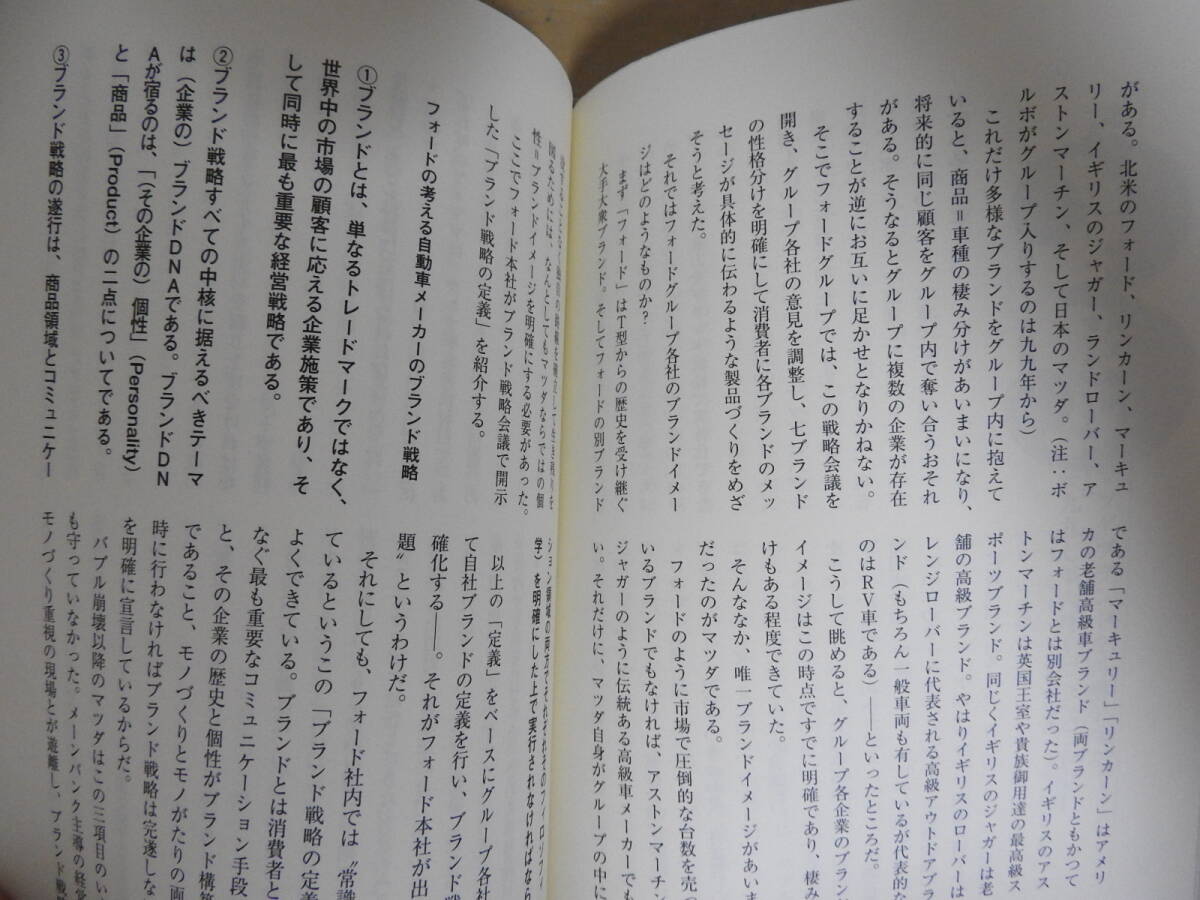 がある。北米のフォード、リンカーン、マーキュ
リー、イギリスのジャガー、ランドローバー、ア
ストンマーチン、そして日本のマツダ。（注：ボ
ルボがグループ入りするのは九九年から）
これだけ多様なブランドをグループ内に抱えて
いると、商品＝車種の棲み分けがあいまいになり、
将来的に同じ顧客をグループ内で奪い合うおそれ
がある。そうなるとグループに複数の企業が存在
することが逆にお互いに足かせとなりかねない。
そこでフォードグループでは、この戦略会議を
開き、グループ各社の意見を調整し、七ブランド
の性格分けを明確にして消費者に各ブランドのメッ
セージが具体的に伝わるような製品づくりをめざ
そうと考えた。
それではフォードグループ各社のブランドイメー
ジはどのようなものか？
まず「フォード」はT型からの歴史を受け継ぐ
大手大衆ブランド。そしてフォードの別ブランド
である「マーキュリー」「リンカーン」はアメリ
カの老舗高級車ブランド（両ブランドともかつて
はフォードとは別会社だった）。イギリスのアス
トンマーチンは英国王室や貴族御用達の最高級ス
ポーツブランド。同じくイギリスのジャガーは老
舗の高級ブランド。やはりイギリスのローバーは
レンジローバーに代表される高級アウトドアブラ
ンド（もちろん一般車両も有しているが代表的な
のはRV車である）――といったところだ。
こうして眺めると、グループ各企業のブラン
イメージはこの時点ですでに明確であり、棲み
けもある程度できていた。
そんななか、唯一ブランドイメージがあいま
だったのがマツダである。
フォードのように市場で圧倒的な台数を売っ
いるブランドでもなければ、アストンマーチン
ジャガーのように伝統ある高級車メーカーでも
い。それだけに、マツダ自身がグループの中に
図るためには、なんとしてもマツダならではの個
性＝ブランドイメージを明確にする必要があった。
ここでフォード本社がブランド戦略会議で開示
した「ブランド戦略の定義」を紹介する。
フォードの考える自動車メーカーのブランド戦略
①ブランドとは、単なるトレードマークではなく、
世界中の市場の顧客に応える企業施策であり、そ
して同時に最も重要な経営戦略である。
②ブランド戦略すべての中核に据えるべきテーマ
は（企業の）ブランドDNAである。ブランドDN
Aが宿るのは、「（その企業の）個性」（Personality）
と「商品」（Product）の二点についてである。
③ブランド戦略の遂行は、商品領域とコミュニケー
ション領域の両方でそれぞれそのフィロソフィ
学）を明確にした上で実行されなければなら
以上の「定義」をベースにグループ各社
て自社ブランドの定義を行い、ブランド戦
確化する――。それがフォード本社が出
題〟というわけだ。
それにしても、フォード社内では〝常識
ているというこの「ブランド戦略の定義
よくできている。ブランドとは消費者と
なぐ最も重要なコミュニケーション手段
と、その企業の歴史と個性がブランド構築
であること、モノづくりとモノがたりの両
時に行わなければブランド戦略は完遂しな
を明確に宣言しているからだ。
バブル崩壊以降のマツダはこの三項目のい
も守っていなかった。メーンバンク主導の経営
モノづくり重視の現場とが遊離し、ブランド戦